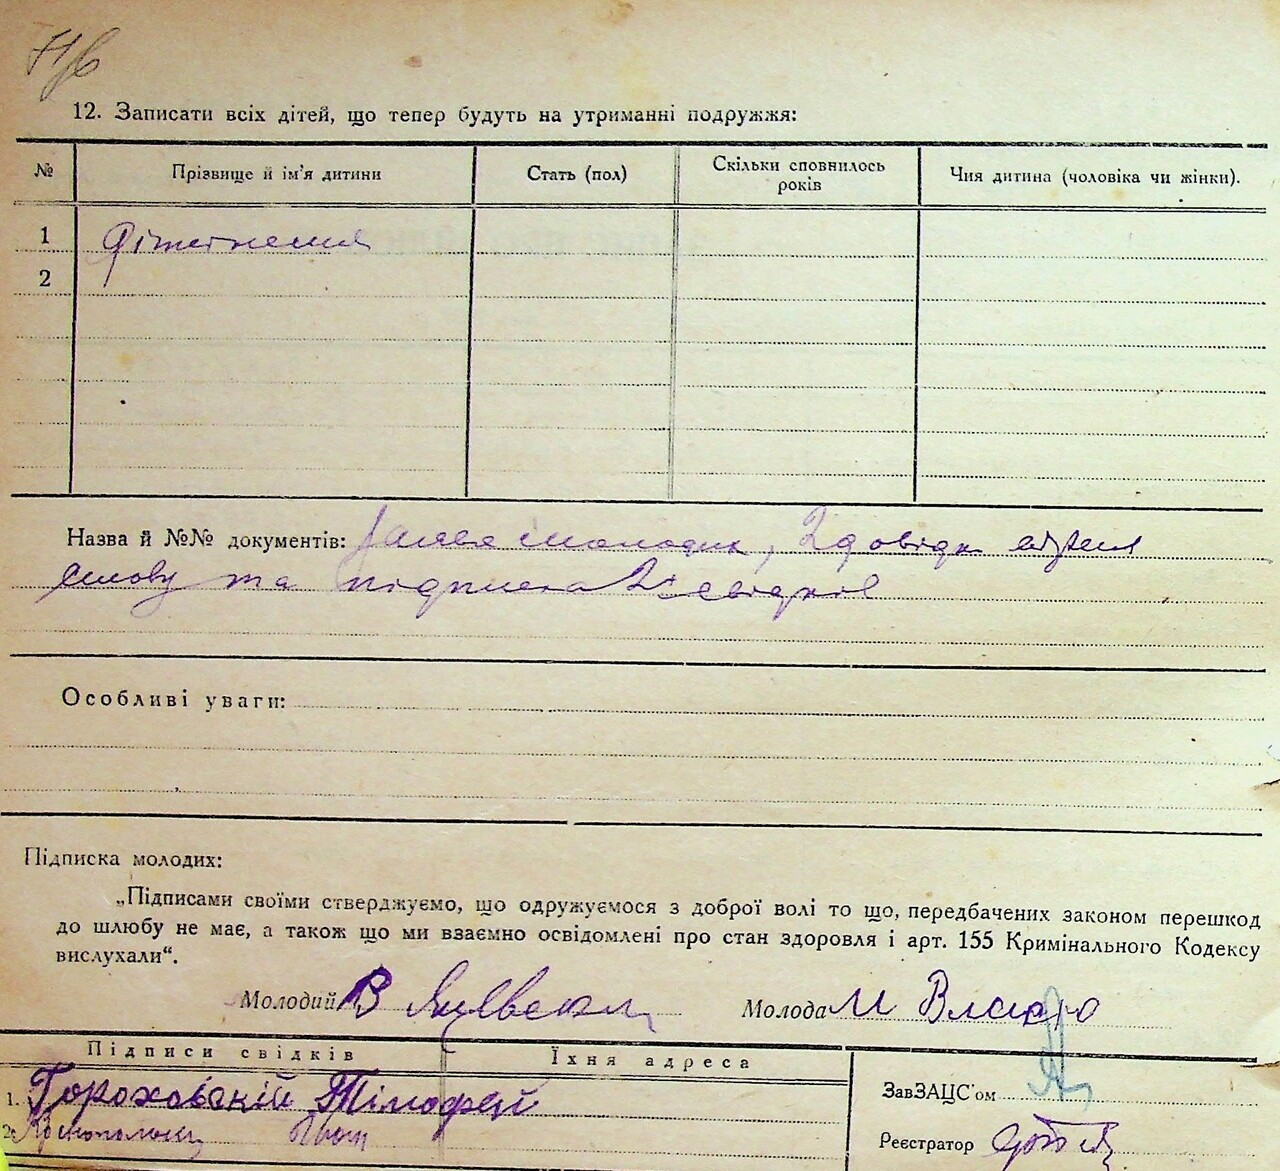 12. Записати всіх дітей, що тепер будуть на утриманні подружжя:
№ Прізвище й ім'я дитини Стать (пол) Скільки сповнилось років Чия дитина (чоловіка чи жінки).
1
2
Назва й №№ документів: молодих, 2 довідки
та підписка 2х свідків
Особливі уваги:
Підписка молодих:
„Підписами своїми стверджуємо, що одружуємося з доброї волі то що, передбачених законом перешкод
до шлюбу не має, а також що ми взаємно освідомлені про стан здоровля і арт. 155 Кримінального Кодексу
вислухали“.
Молодий В Молода М
Підписи свідків Їхня адреса
1. Гороховскій Тімофей
ЗавЗАЦС'ом
2.
Реєстратор